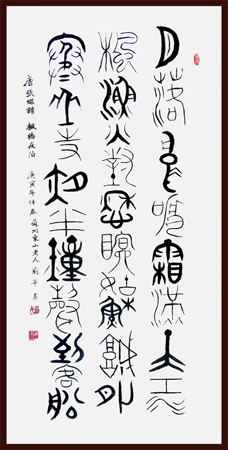 月落烏啼霜滿天江
楓漁火對愁眠姑蘇城外
寒山寺夜半鐘聲到客船
唐張繼詩 楓橋夜泊 庚寅年仲春 蘇州東山老人